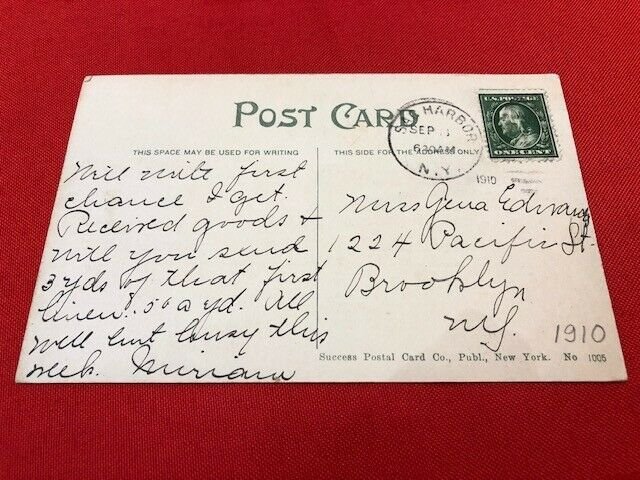 POST CARD
THIS SPACE MAY BE USED FOR WRITING
THE ADDRESS ONLY.
HARBOR
SEP
630AM
N.Y.
1910
U.S. POSTAGE
ONE CENT
Will write first
chance I get.
Received goods &
will you send
3 yds of that first
linen .50 a yd. All
well but busy this
week. Miriam
Miss Gena Edwards
1224 Pacific St.
Brooklyn
N.Y.
1910
Success Postal Card Co., Publ., New York. No 1005